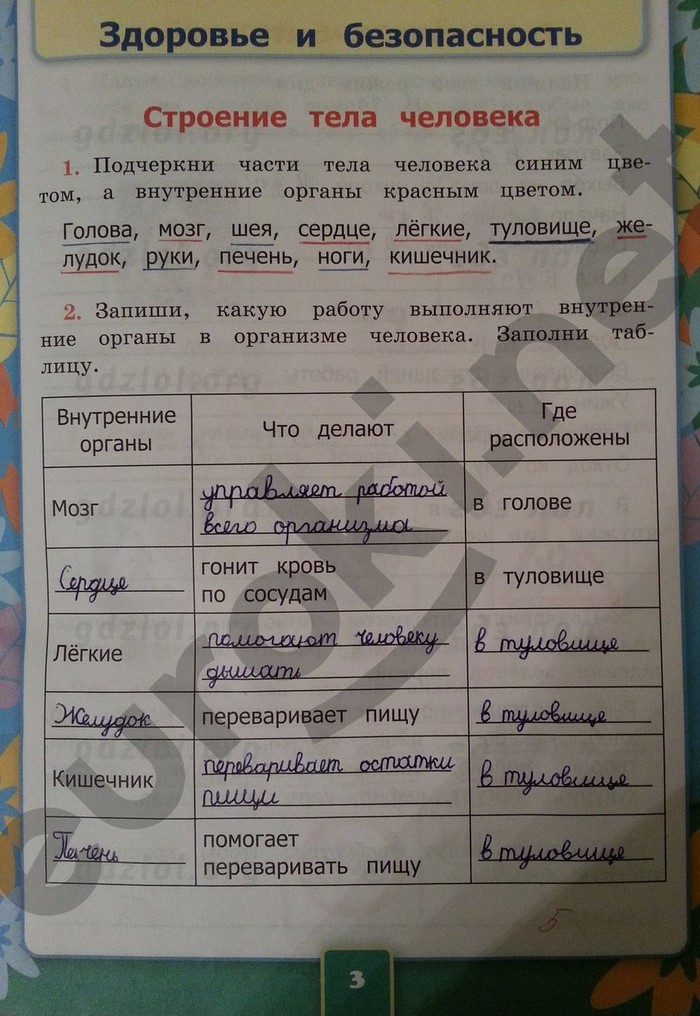 Здоровье и безопасность
Строение тела человека
1. Подчеркни части тела человека синим цве-
том, а внутренние органы красным цветом.
Голова, мозг, шея, сердце, лёгкие, туловище, же-
лудок, руки, печень, ноги, кишечник.
2. Запиши, какую работу выполняют внутрен-
ние органы в организме человека. Заполни таб-
лицу.
Внутренние органы Что делают Где расположены
Мозг управляет работой всего организма в голове
Сердце гонит кровь по сосудам в туловище
Лёгкие помогают человеку дышать в туловище
Желудок переваривает пищу в туловище
Кишечник переваривает остатки пищи в туловище
Печень помогает переваривать пищу в туловище
5
3
euroki.net
gdzlol.org